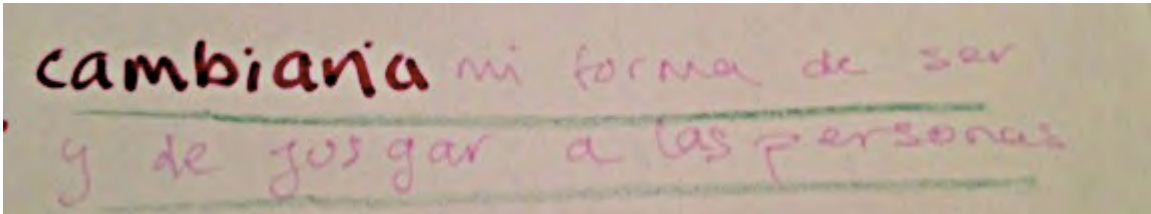 cambiaria mi forma de ser
y de jusgar a las personas